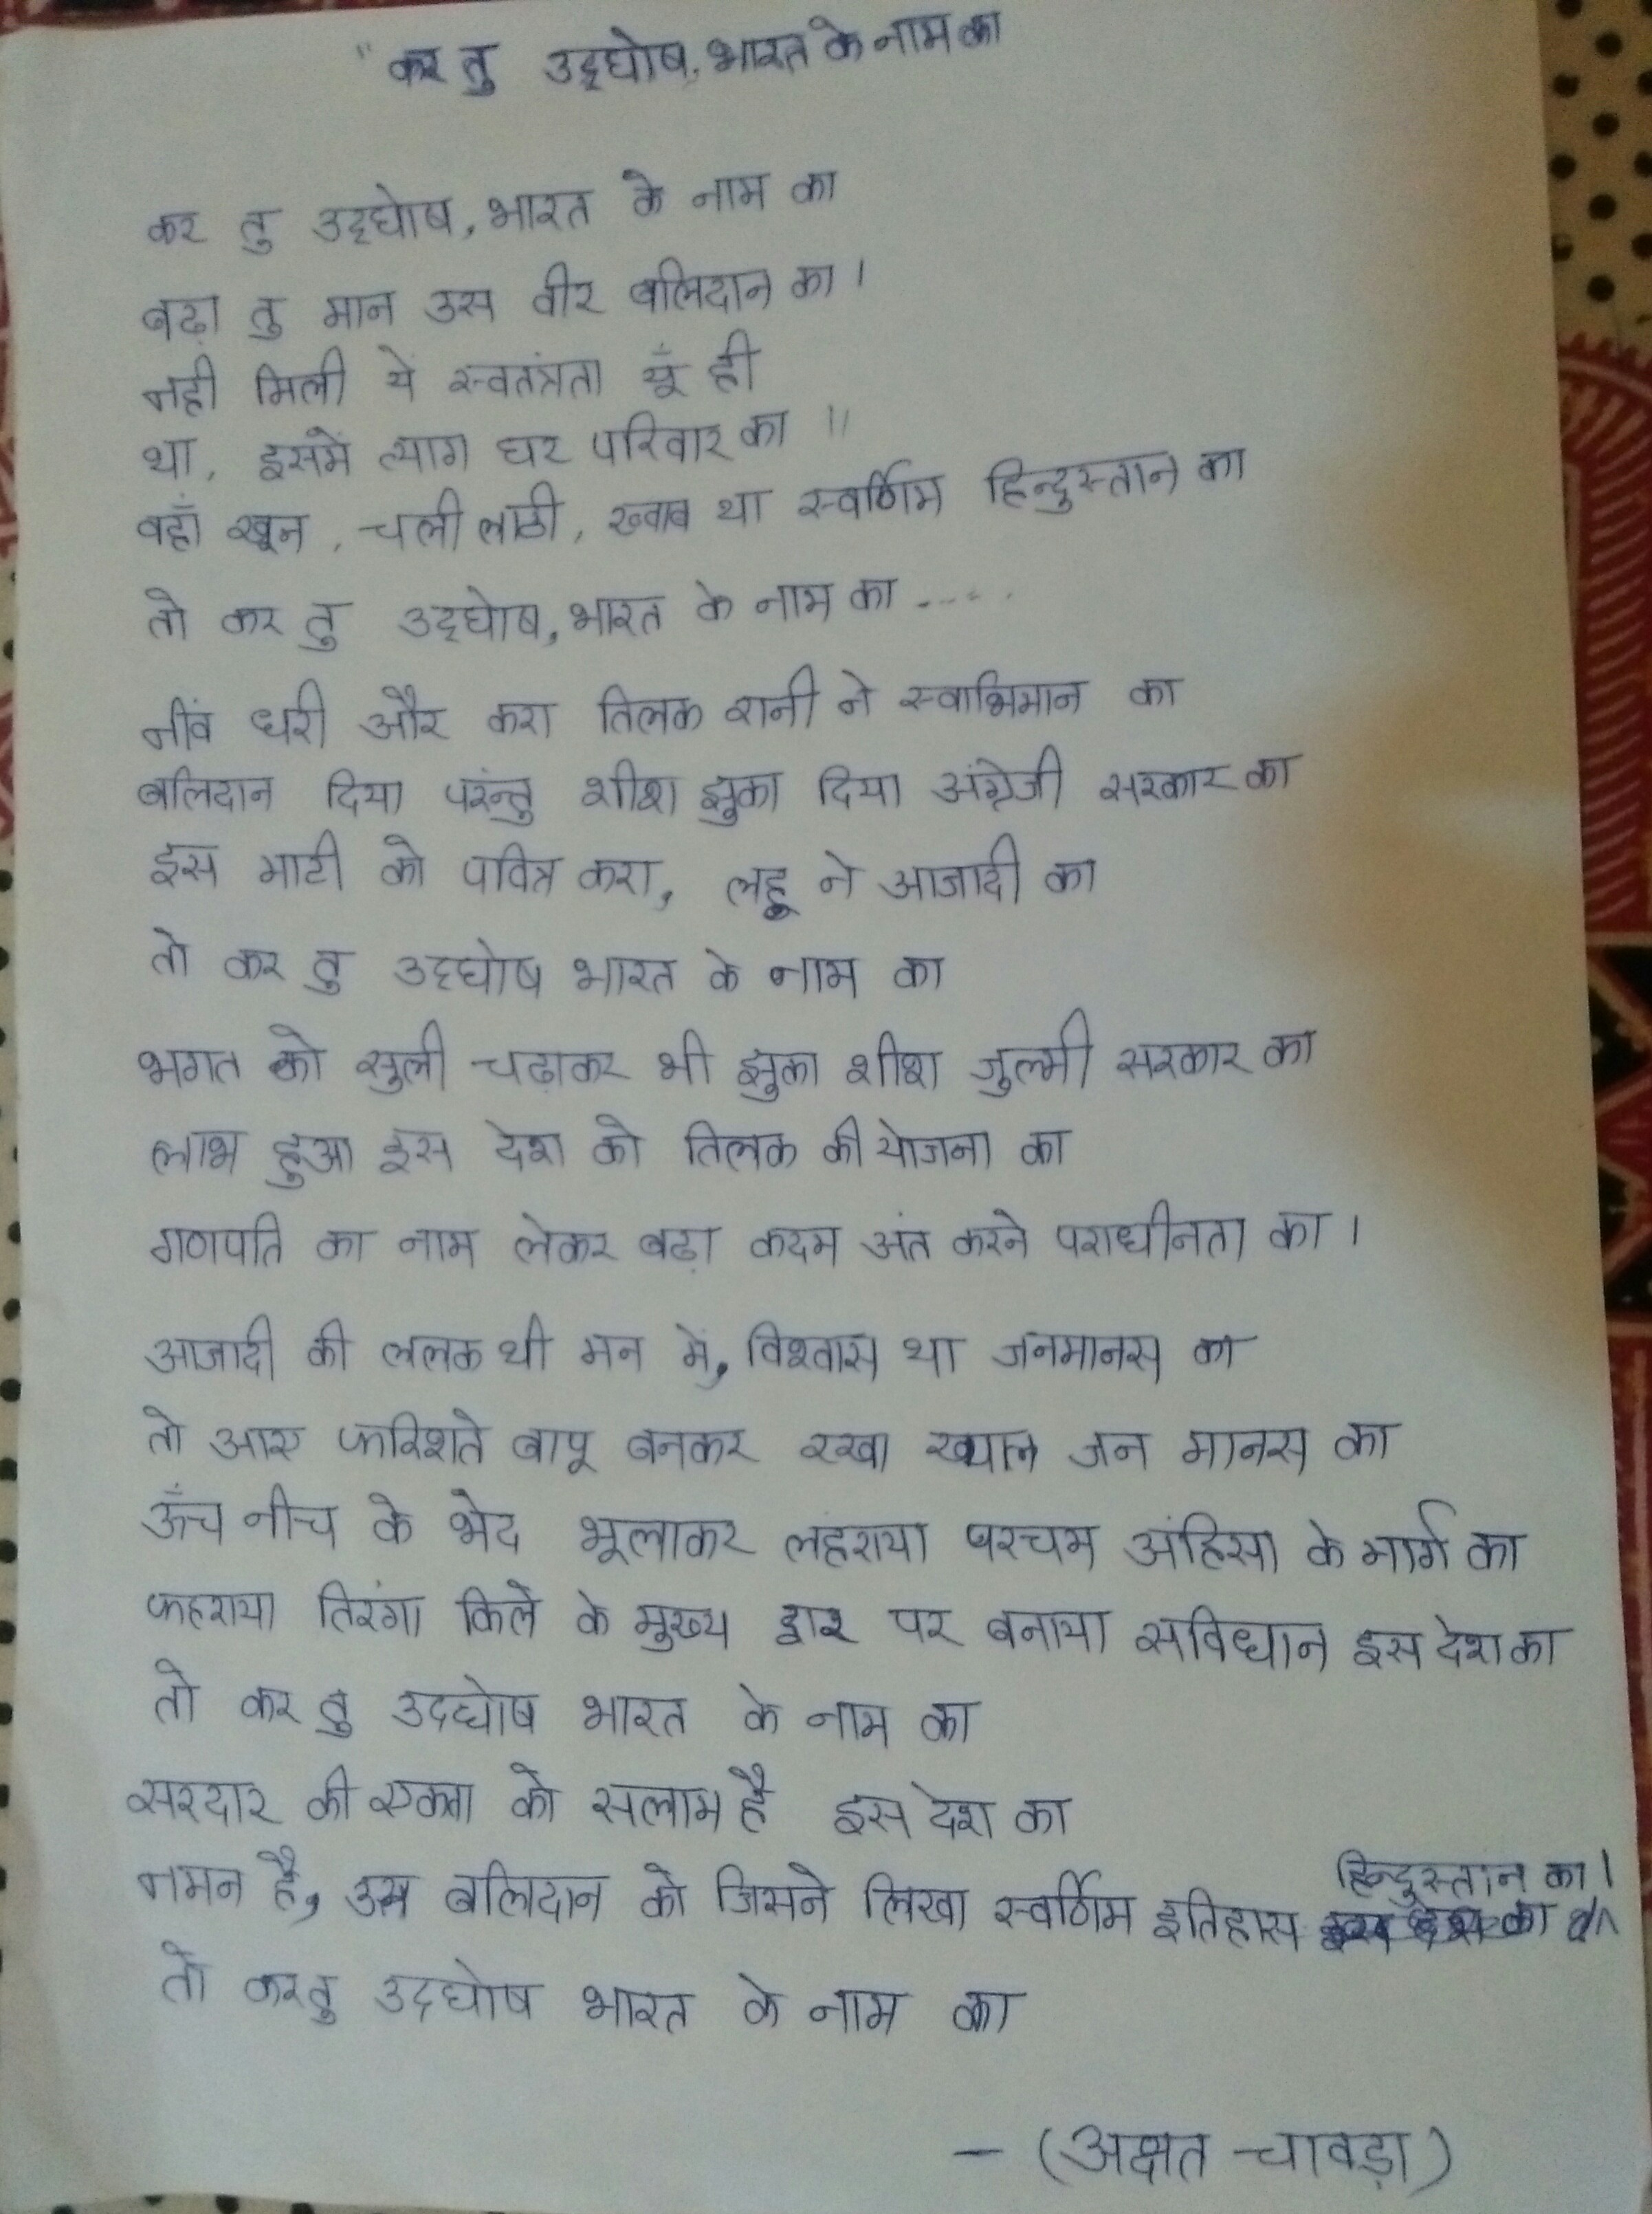 "कर तु उद्घोष, भारत के नाम का
कर तु उद्घोष, भारत के नाम का
बढ़ा तु मान उस वीर बलिदान का।
नही मिली ये स्वतंत्रता यूँ ही
था, इसमें त्याग घर परिवार का ॥
वहाँ खून, चली लाठी, ख्वाब था स्वर्णिम हिन्दुस्तान का
तो कर तु उद्घोष, भारत के नाम का .....
नींव धरी और करा तिलक रानी ने स्वाभिमान का
बलिदान दिया परंन्तु शीश झुका दिया अंग्रेजी सरकार का
इस माटी को पवित्र करा, लहू ने आजादी का
तो कर तु उद्घोष भारत के नाम का
भगत को सुली चढ़ाकर भी झुका शीश जुल्मी सरकार का
लाभ हुआ इस देश को तिलक की योजना का
गणपति का नाम लेकर बढ़ा कदम अंत करने पराधीनता का।
आजादी की ललक थी मन में, विश्वास था जनमानस का
तो आए फरिशते बापू बनकर रखा ख्याल जन मानस का
ऊँच नीच के भेद भूलाकर लंहराया परचम अंहिसा के मार्ग का
फहराया तिरंगा किले के मुख्य द्वार पर बनाया सविधान इस देश का
तो कर तु उदघोष भारत के नाम का
सरदार की एकता को सलाम है इस देश का
नमन है, उस बलिदान को जिसने लिखा स्वर्णिम इतिहास हिन्दुस्तान का।
तो कर तु उदघोष भारत के नाम का
– (अक्षत चावड़ा)